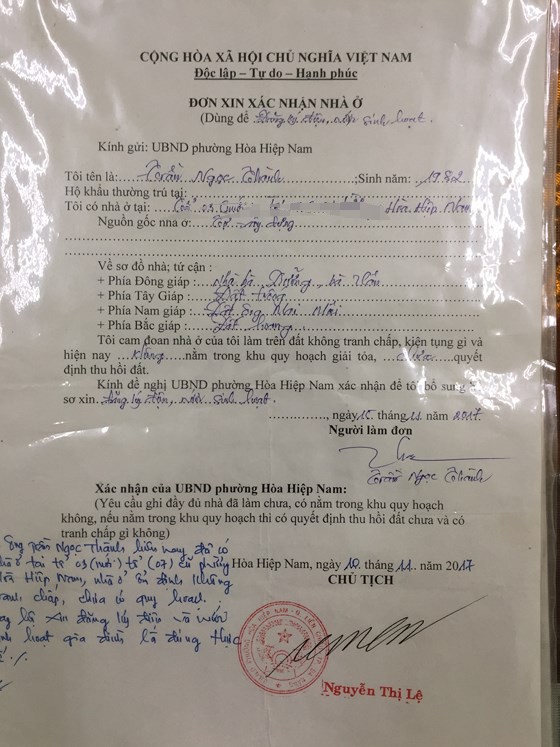 CỘNG HÒA XÃ HỘI CHỦ NGHĨA VIỆT NAM
Độc lập – Tự do – Hạnh phúc
ĐƠN XIN XÁC NHẬN NHÀ Ở
(Dùng để Đăng ký điện, nước sinh hoạt.
Kính gửi: UBND phường Hòa Hiệp Nam
Tôi tên là: Trần Ngọc Thành ;Sinh năm: 1982
Hộ khẩu thường trú tại:
Tôi có nhà ở tại: Hòa Hiệp Nam
Nguồn gốc nha ở: xây dựng
Về sơ đồ nhà; tứ cận :
+ Phía Đông giáp : nhà bà Dưỡng, bà Vân
+ Phía Tây Giáp : Đất trống
+ Phía Nam giáp : Đất ông Mai
+ Phía Bắc giáp : Đất hoang
Tôi cam đoan nhà ở của tôi làm trên đất không tranh chấp, kiện tụng gì và
hiện nay không nằm trong khu quy hoạch giải tỏa, chưa quyết
định thu hồi đất.
Kính đề nghị UBND phường Hòa Hiệp Nam xác nhận để tôi bổ sung
sơ xin. Đăng ký điện, nước sinh hoạt
, ngày 10. tháng 11. năm 2017.
Người làm đơn
Trần Ngọc Thành
Xác nhận của UBND phường Hòa Hiệp Nam:
(Yêu cầu ghi đầy đủ nhà đã làm chưa, có nằm trong khu quy hoạch
không, nếu nằm trong khu quy hoạch thì có quyết định thu hồi đất chưa và có
tranh chấp gì không)
Ông Trần Ngọc Thành hiện nay đã có
nhà ở tại tổ 03 (mới) tổ (07) cũ phường
Hòa Hiệp Nam, nhà ở ổn định không
tranh chấp, chưa có quy hoạch.
nay là xin đăng ký điện và nước
sinh hoạt gia đình là đúng thực
tế ./.
Hòa Hiệp Nam, ngày 10. tháng 11. năm 2017
CHỦ TỊCH
Nguyễn Thị Lệ